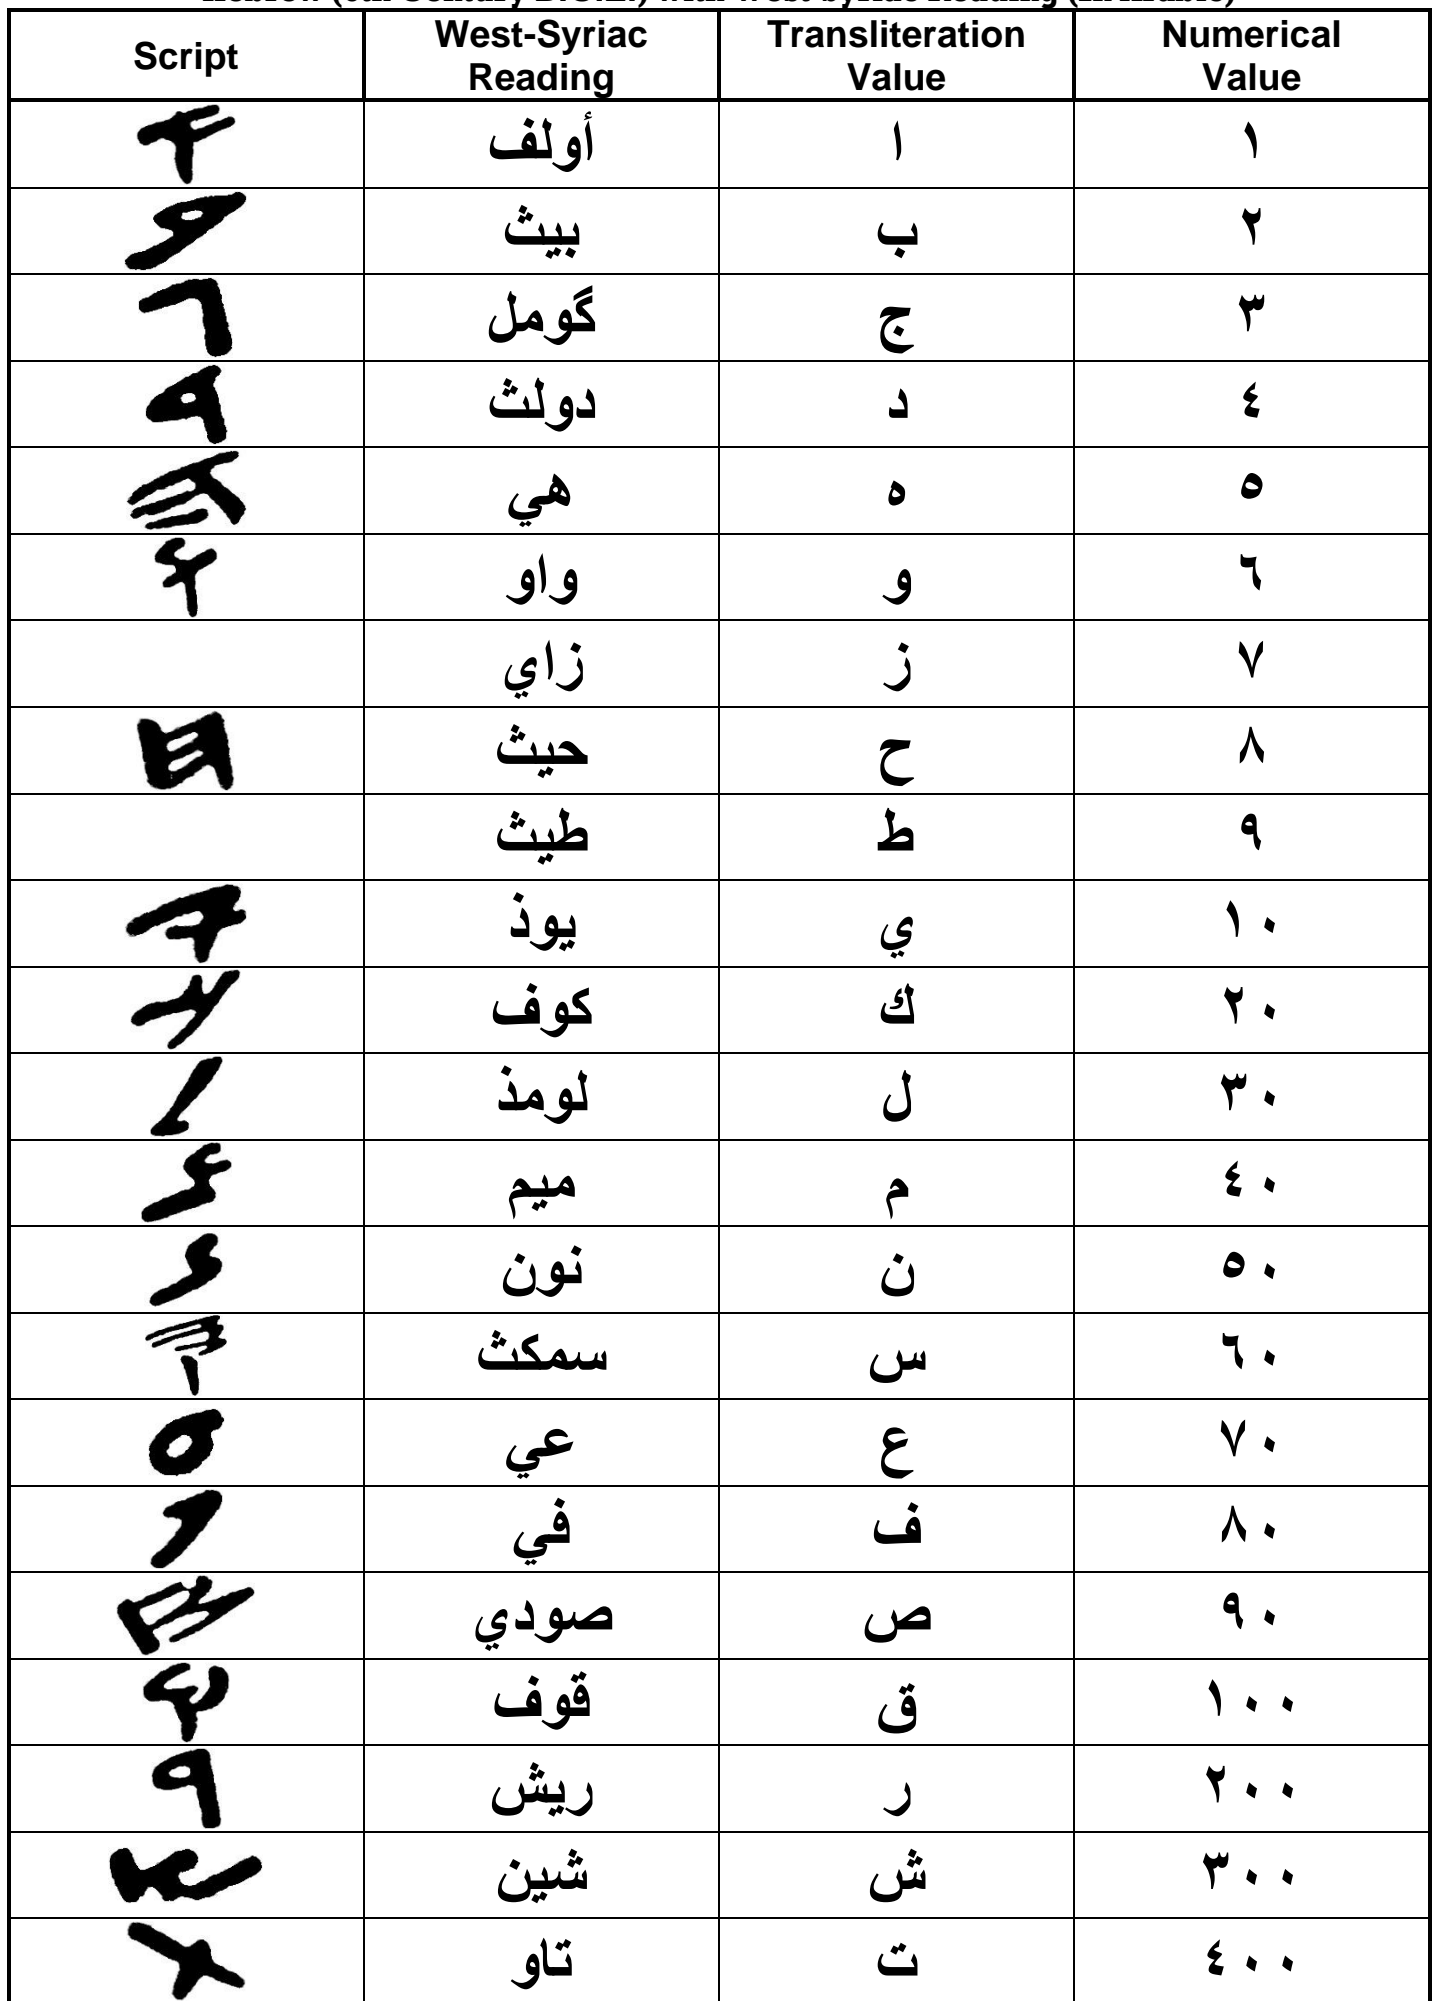 Script West-Syriac Reading Transliteration Value Numerical Value
𐤀 أولف ا ١
𐤁 بيث ب ٢
𐤂 گومل ج ٣
𐤃 دولث د ٤
𐤄 هي ه ٥
𐤅 واو و ٦
زاي ز ٧
𐤇 حيث ح ٨
طيث ط ٩
𐤉 يوذ ي ١٠
𐤊 كوف ك ٢٠
𐤋 لومذ ل ٣٠
𐤌 ميم م ٤٠
𐤍 نون ن ٥٠
𐤎 سمكث س ٦٠
𐤏 عي ع ٧٠
𐤐 في ف ٨٠
𐤑 صودي ص ٩٠
𐤒 قوف ق ١٠٠
𐤓 ريش ر ٢٠٠
𐤔 شين ش ٣٠٠
𐤕 تاو ت ٤٠٠